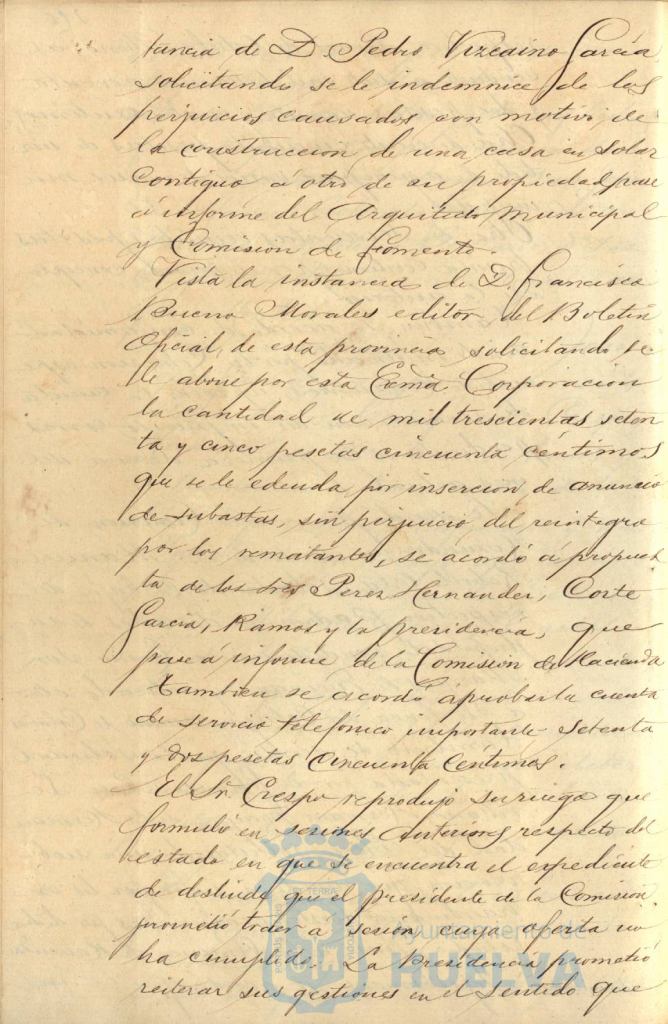 tancia de D. Pedro Vizcaino García
solicitando se le indemnice de los
perjuicios causados con motivo de
la construccion de una casa en solar
contiguo á otro de su propiedad, pase
á informe del Arquitecto Municipal
y Comision de Fomento.
Vista la instancia de D. Francisco
Bueno Morales editor del Boletin
Oficial, de esta provincia solicitando se
le abone por esta Exma Corporacion
la cantidad de mil trescientas seten
ta y cinco pesetas cincuenta céntimos
que se le adeuda por insercion de anuncio
de subastas, sin perjuicio del reintegro
por los rematantes, se acordó á propues
ta de los Sres Perez Hernandez, Corte
García, Ramos y la presidencia, que
pase á informe de la Comision de Hacienda
Tambien se acordó aprobar la cuenta
de servicio telefónico importante setenta
y dos pesetas cincuenta céntimos.
El Sr. Crespo reprodujo su ruego que
formuló en sesiones anteriores respecto del
estado en que se encuentra el expediente
de deslinde que el presidente de la Comision
prometió traer á sesion, cuya oferta no
ha cumplido. La Presidencia prometió
reiterar sus gestiones en el sentido que
Ayuntamiento de
HUELVA